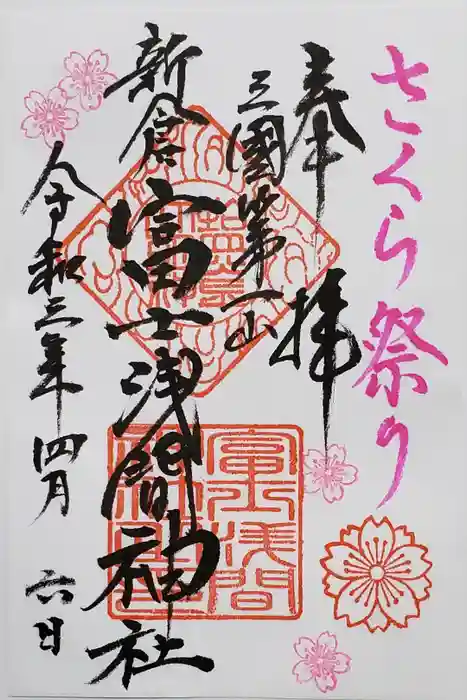 さくら祭り
奉拝
三國第一山
新倉富士浅間神社
令和三年四月六日
富士浅間